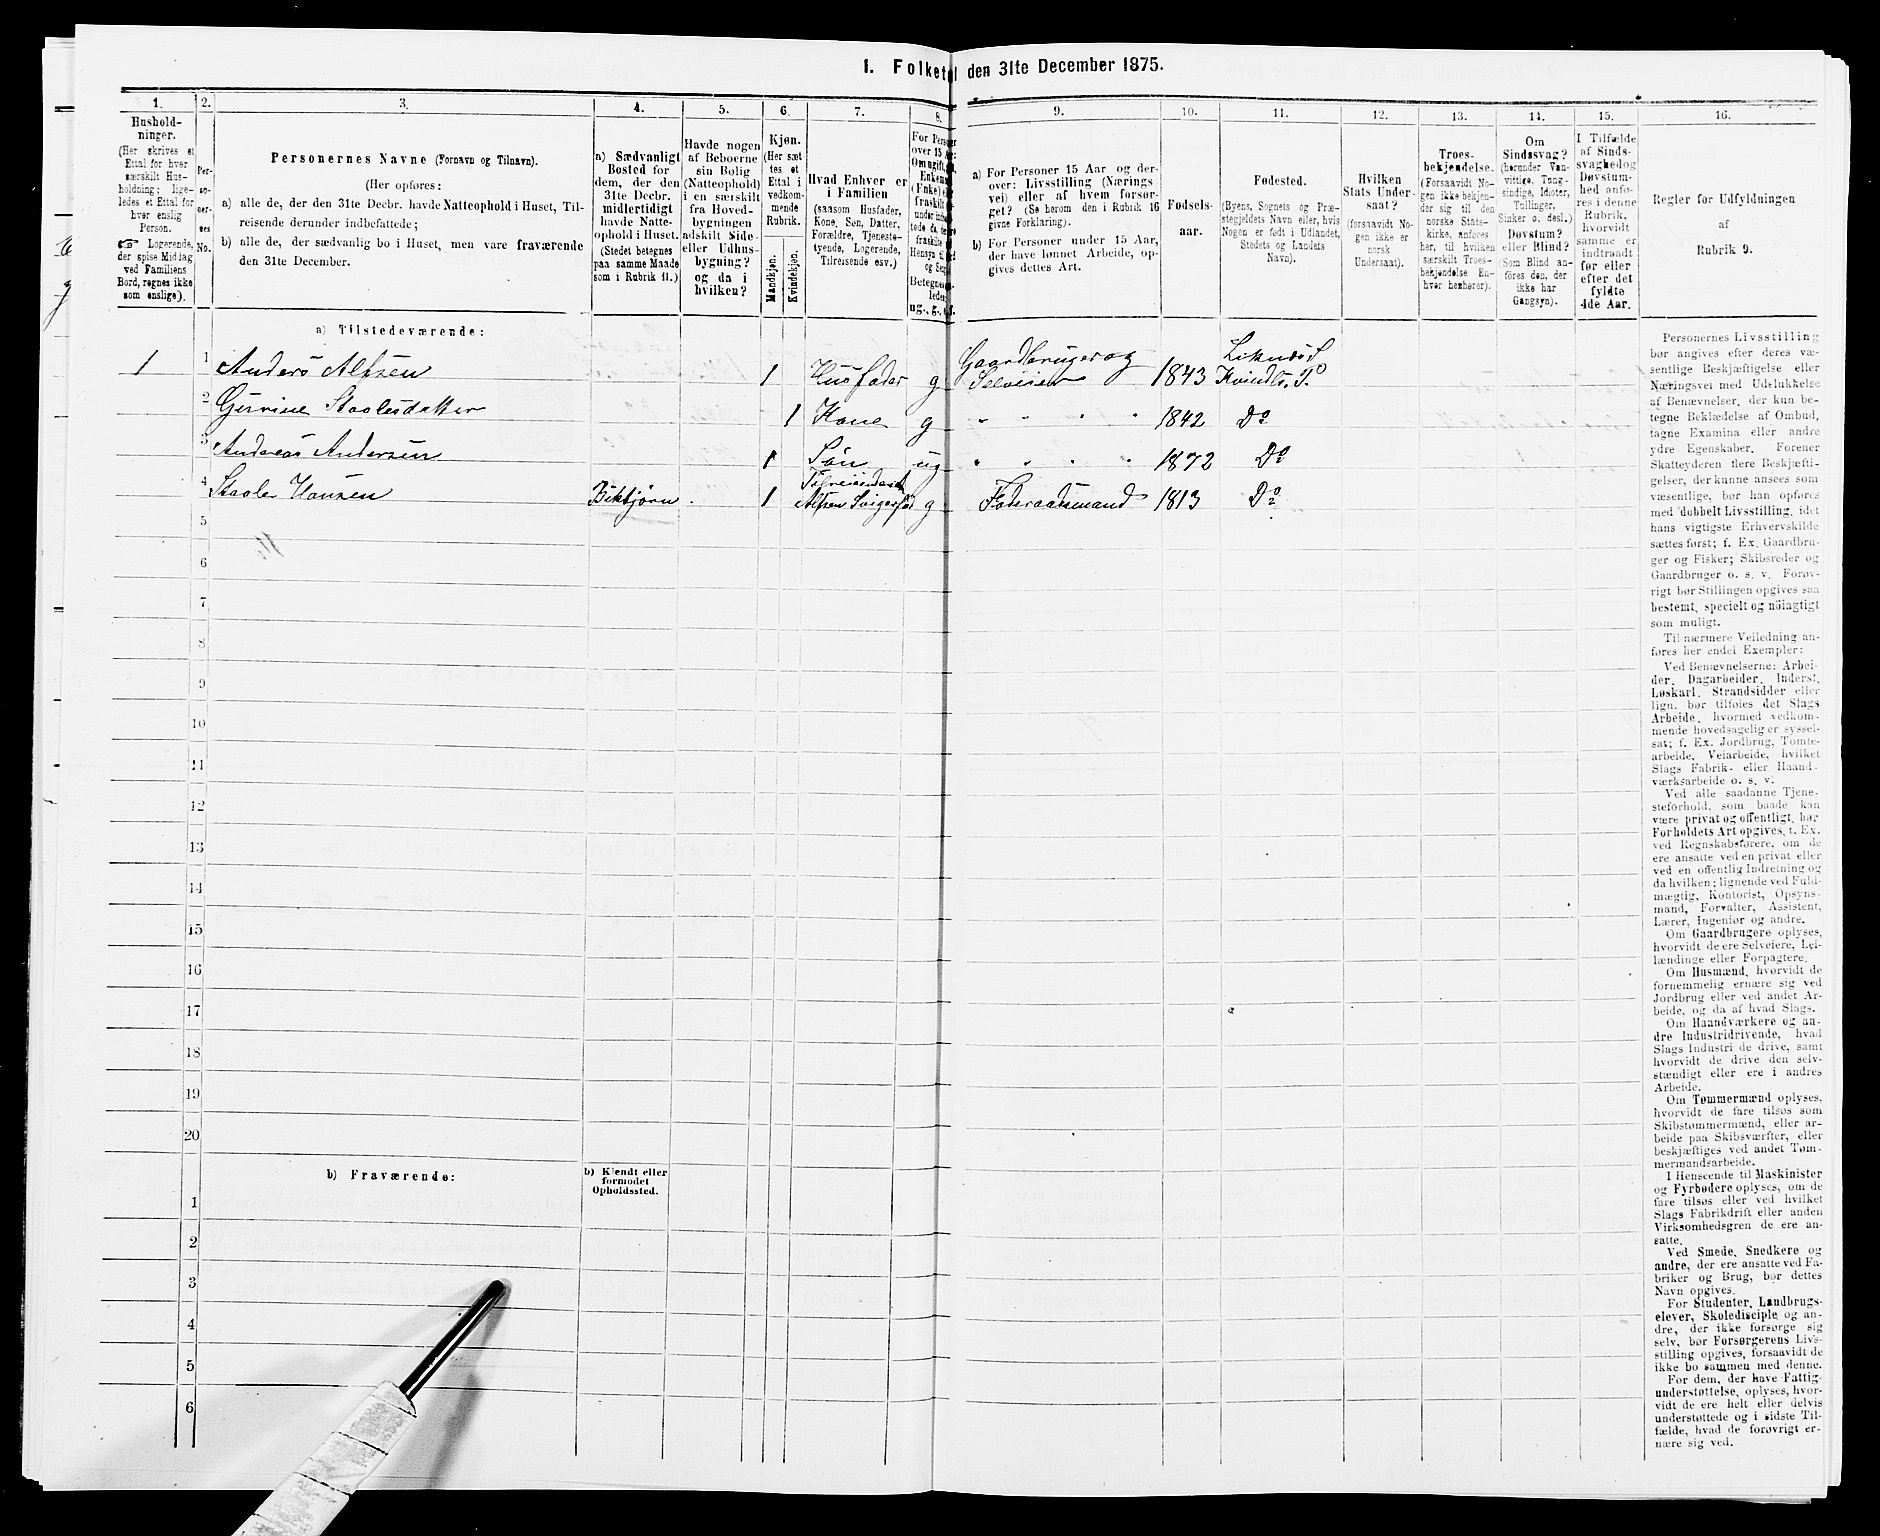 1. Folketal den 31te December 1875.
1.
Hushold-
ninger.
(Her skrives et
Ettal for hver
særskilt Hus-
holdning; lige-
ledes et Ettal for
hver enslig
Person.
☞ Logerende,
der spise Middag
ved Familiens
Bord, regnes ikke
som enslige).
2.
Per-
so-
ner-
nes
No.
3.
Personernes Navne (Fornavn og Tilnavn).
(Her opføres:
a) alle de, der den 31te Decbr. havde Natteophold i Huset, Til-
reisende derunder indbefattede;
b) alle de, der sædvanlig bo i Huset, men vare fraværende
den 31te December.
4.
a) Sædvanligt
Bosted for
dem, der den
31te Decbr.
midlertidigt
havde Natte-
ophold i Huset.
(Stedet betegnes
paa samme Maade
som i Rubrik 11.)
5.
Havde nogen
af Beboerne
sin Bolig
(Natteophold)
i en særskilt
fra Hoved-
bygningen
adskilt Side-
eller Udhus-
bygning?
og da i
hvilken?
6.
Kjøn.
(Her sæt
tes et
Ettal i
vedkom-
mende
Rubrik.
Mandkjøn.
Kvindekjøn.
7.
Hvad Enhver er
i Familien
(saasom Husfader,
Kone, Søn, Datter,
Forældre, Tjeneste-
tyende, Logerende,
Tilreisende osv.)
8.
9.
a) For Personer 15 Aar og der-
over: Livsstilling (Nærings
vei) eller af hvem forsør-
get? (Se herom den i Rubrik 16
givne Forklaring).
b) For Personer under 15 Aar,
der have lønnet Arbeide, op-
gives dettes Art.
10.
Fødsels-
aar.
11.
Fødested.
(Byens, Sognets og Præ-
stegjeldets Navn eller, hvis
Nogen er født i Udlandet,
Stedets og Landets
Navn).
12.
Hvilken
Stats Under-
saat?
(forsaavidt No-
gen ikke er
norsk
Undersaat).
13.
Troes-
bekjendelse.
(Forsaavidt No-
gen ikke bekjen-
der sig til den
norske Stats-
kirke, anføres
her, til hvilken
særskilt Troes-
bekjendelse En-
hver henhører).
14.
Om
Sindssvag?
(herunder Van-
vittige, Tung-
sindige, Idioter,
Tullinger,
Sinker o. desl.)
Døvstum?
eller Blind?
(Som Blind an-
føres den, der
ikke har
Gangsyn).
15.
I Tilfælde
af Sinds-
svaghed og
Døvstum-
hed anfø-
res i denne
Rubrik,
hvorvidt
samme er
indtraadt
før eller
efter det
fyldte
4de Aar.
16.
Regler for Udfyldningen
af
Rubrik 9.
a) Tilstedeværende:
1 1 Anders Alfsen 1 Husfader g Gaardbruger og Selveier 1843 Liknæs S. Kvindes. P.
2 Gurine Staalesdatter 1 Kone g " " " " 1842 Do
3 Andreas Andersen 1 Søn ug " " " " 1872 Do
4 Staale Hansen 1 g Føderaadsmand 1813 Do
5
6
7
8
9
10
11
12
13
14
15
16
17
18
19
20
b) Fraværende:
b) Kjendt eller
formodet
Opholdssted.
1
2
3
4
5
6
Personernes Livsstilling
bør angives efter deres væ-
sentlige Beskjæftigelse eller
Næringsvei med Udelukkelse
af Benævnelser, der kun be-
tegne Beklædelse af Ombud,
tagne Examina eller andre
ydre Egenskaber. Forener
Skatteyderen flere Beskjæfti-
gelser, der kunne ansees som
væsentlige, bør han opføres
med dobbelt Livsstilling, idet
hans vigtigste Erhvervskilde
sættes først; f. Ex. Gaardbru-
ger og Fisker; Skibsreder og
Gaardbruger o. s. v. Forøv-
rigt bør Stillingen opgives saa
bestemt, specielt og nöiagtigt
som muligt.
Til nærmere Veiledning an-
føres her endel Exempler:
Ved Benævnelserne: Arbei-
der, Dagarbeider, Inderst,
Løskarl, Strandsidder eller
lign. bør tilføies det Slags
Arbeide, hvormed vedkom-
mende hovedsagelig er syssel-
sat; f. Ex. Jordbrug, Tomte-
arbeide, Veiarbeide, hvilket
Slags Fabrik- eller Haand-
værksarbeide o. s. v.
Ved alle saadanne Tjene-
steforhold, som baade kan
være privat og offentligt, bør
Forholdets Art opgives, f. Ex.
ved Regnskabsførere, om de
ere ansatte ved en privat eller
ved en offentlig Indretning og
da hvilken; lignende ved Fuld-
mægtig, Kontorist, Opsyns-
mand, Forvalter, Assistent,
Lærer, Ingeniør og andre.
Om Gaardbrugere oplyses,
hvorvidt de ere Selveiere, Lei-
lændinge eller Forpagtere.
Om Husmænd, hvorvidt de
fornemmelig ernære sig ved
Jordbrug eller ved andet Ar-
beide, og da af hvad Slags.
Om Haandværkere og an-
dre Industridrivende, hvad
Slags Industri de drive, samt
hvorvidt de drive den selv-
stændigt eller ere i andres
Arbeide.
Om Tømmermænd oplyses,
hvorvidt de fare tilsøs som
Skibstømmermænd, eller ar-
beide paa Skibsværfter, eller
beskjæftiges ved andet Tøm-
mermandsarbeide.
I Henseende til Maskinister
og Fyrbødere oplyses, om de
fare tilsøs eller ved hvilket
Slags Fabrikdrift eller anden
Virksomhedsgren de ere an-
satte.
Ved Smede, Snedkere og
andre, der ere ansatte ved Fa-
briker og Brug, bør dettes
Navn opgives.
For Studenter, Landbrugs-
elever, Skoledisciple og an-
dre, der ikke forsørge sig
selv, bør Forsørgerens Livs-
stilling opgives, forsaavidt de
ikke bo sammen med denne.
For dem, der have Fattig-
understøttelse, oplyses, hvor-
vidt de ere helt eller delvis
understøttede og i sidste Til-
fælde, hvad de forøvrigt er-
nære sig ved.